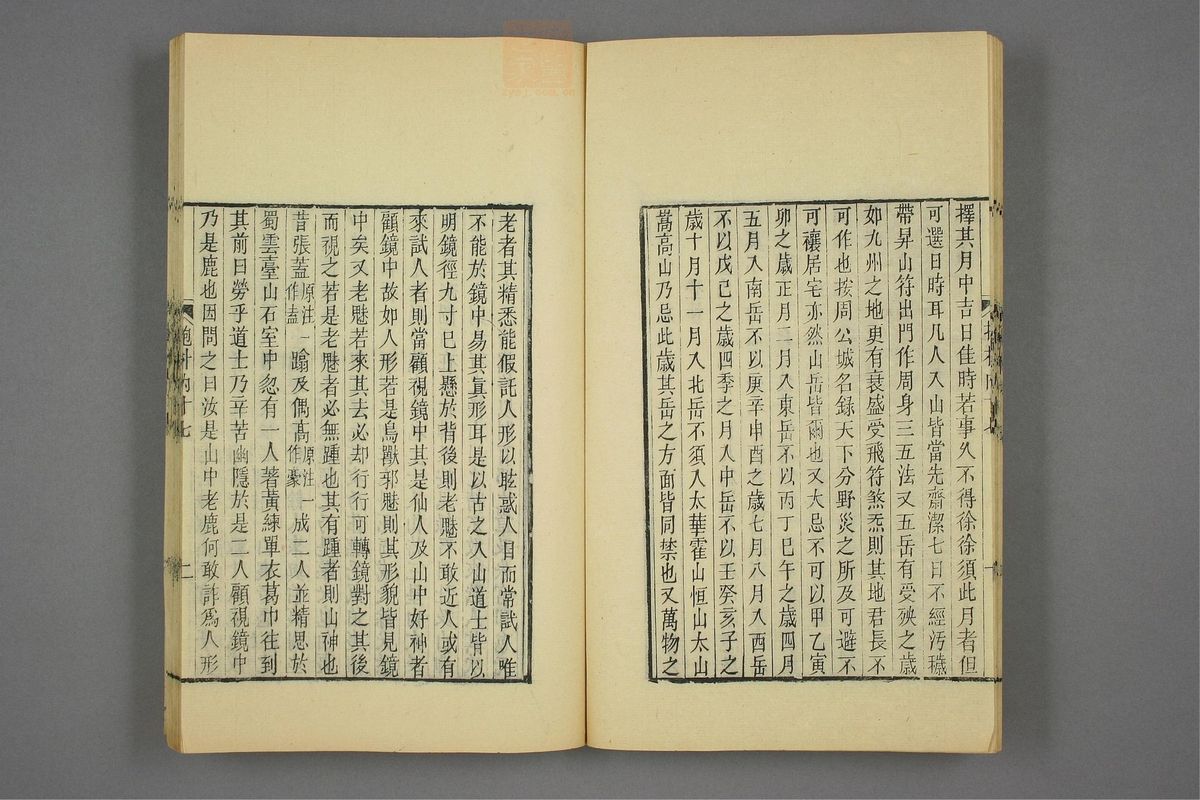 擇其月中吉日佳時若事久不得徐徐須此月者但
可選日時耳凡人入山皆當先齋潔七日不經汚穢
帶昇山符出門作周身三五法又五岳有受殃之歲
如九州之地更有衰盛受飛符煞炁則其地君長不
可作也按周公城名錄天下分野災之所及可避不
可禳居宅亦然山岳皆爾也又大忌不可以甲乙寅
卯之歲正月二月入東岳不以丙丁巳午之歲四月
五月入南岳不以庚辛申酉之歲七月八月入西岳
不以戊己之歲四季之月入中岳不以壬癸亥子之
歲十月十一月入北岳不須入太華霍山恒山太山
嵩高山乃忌此歲其岳之方面皆同禁也又萬物之
老者其精悉能假託人形以眩惑人目而常試人唯
不能於鏡中易其眞形耳是以古之入山道士皆以
明鏡徑九寸已上懸於背後則老魅不敢近人或有
來試人者則當顧視鏡中其是仙人及山中好神者
顧鏡中故如人形若是鳥獸邪魅則其形貌皆見鏡
中矣又老魅若來其去必却行行可轉鏡對之其後
而視之若是老魅者必無踵也其有踵者則山神也
昔張蓋原注一作盍蹹及偶髙原注一作豪成二人並精思於
蜀雲臺山石室中忽有一人著黃練單衣葛巾往到
其前曰勞乎道士乃辛苦幽隱於是二人顧視鏡中
乃是鹿也因問之曰汝是山中老鹿何敢詐爲人形
抱朴内十七
二